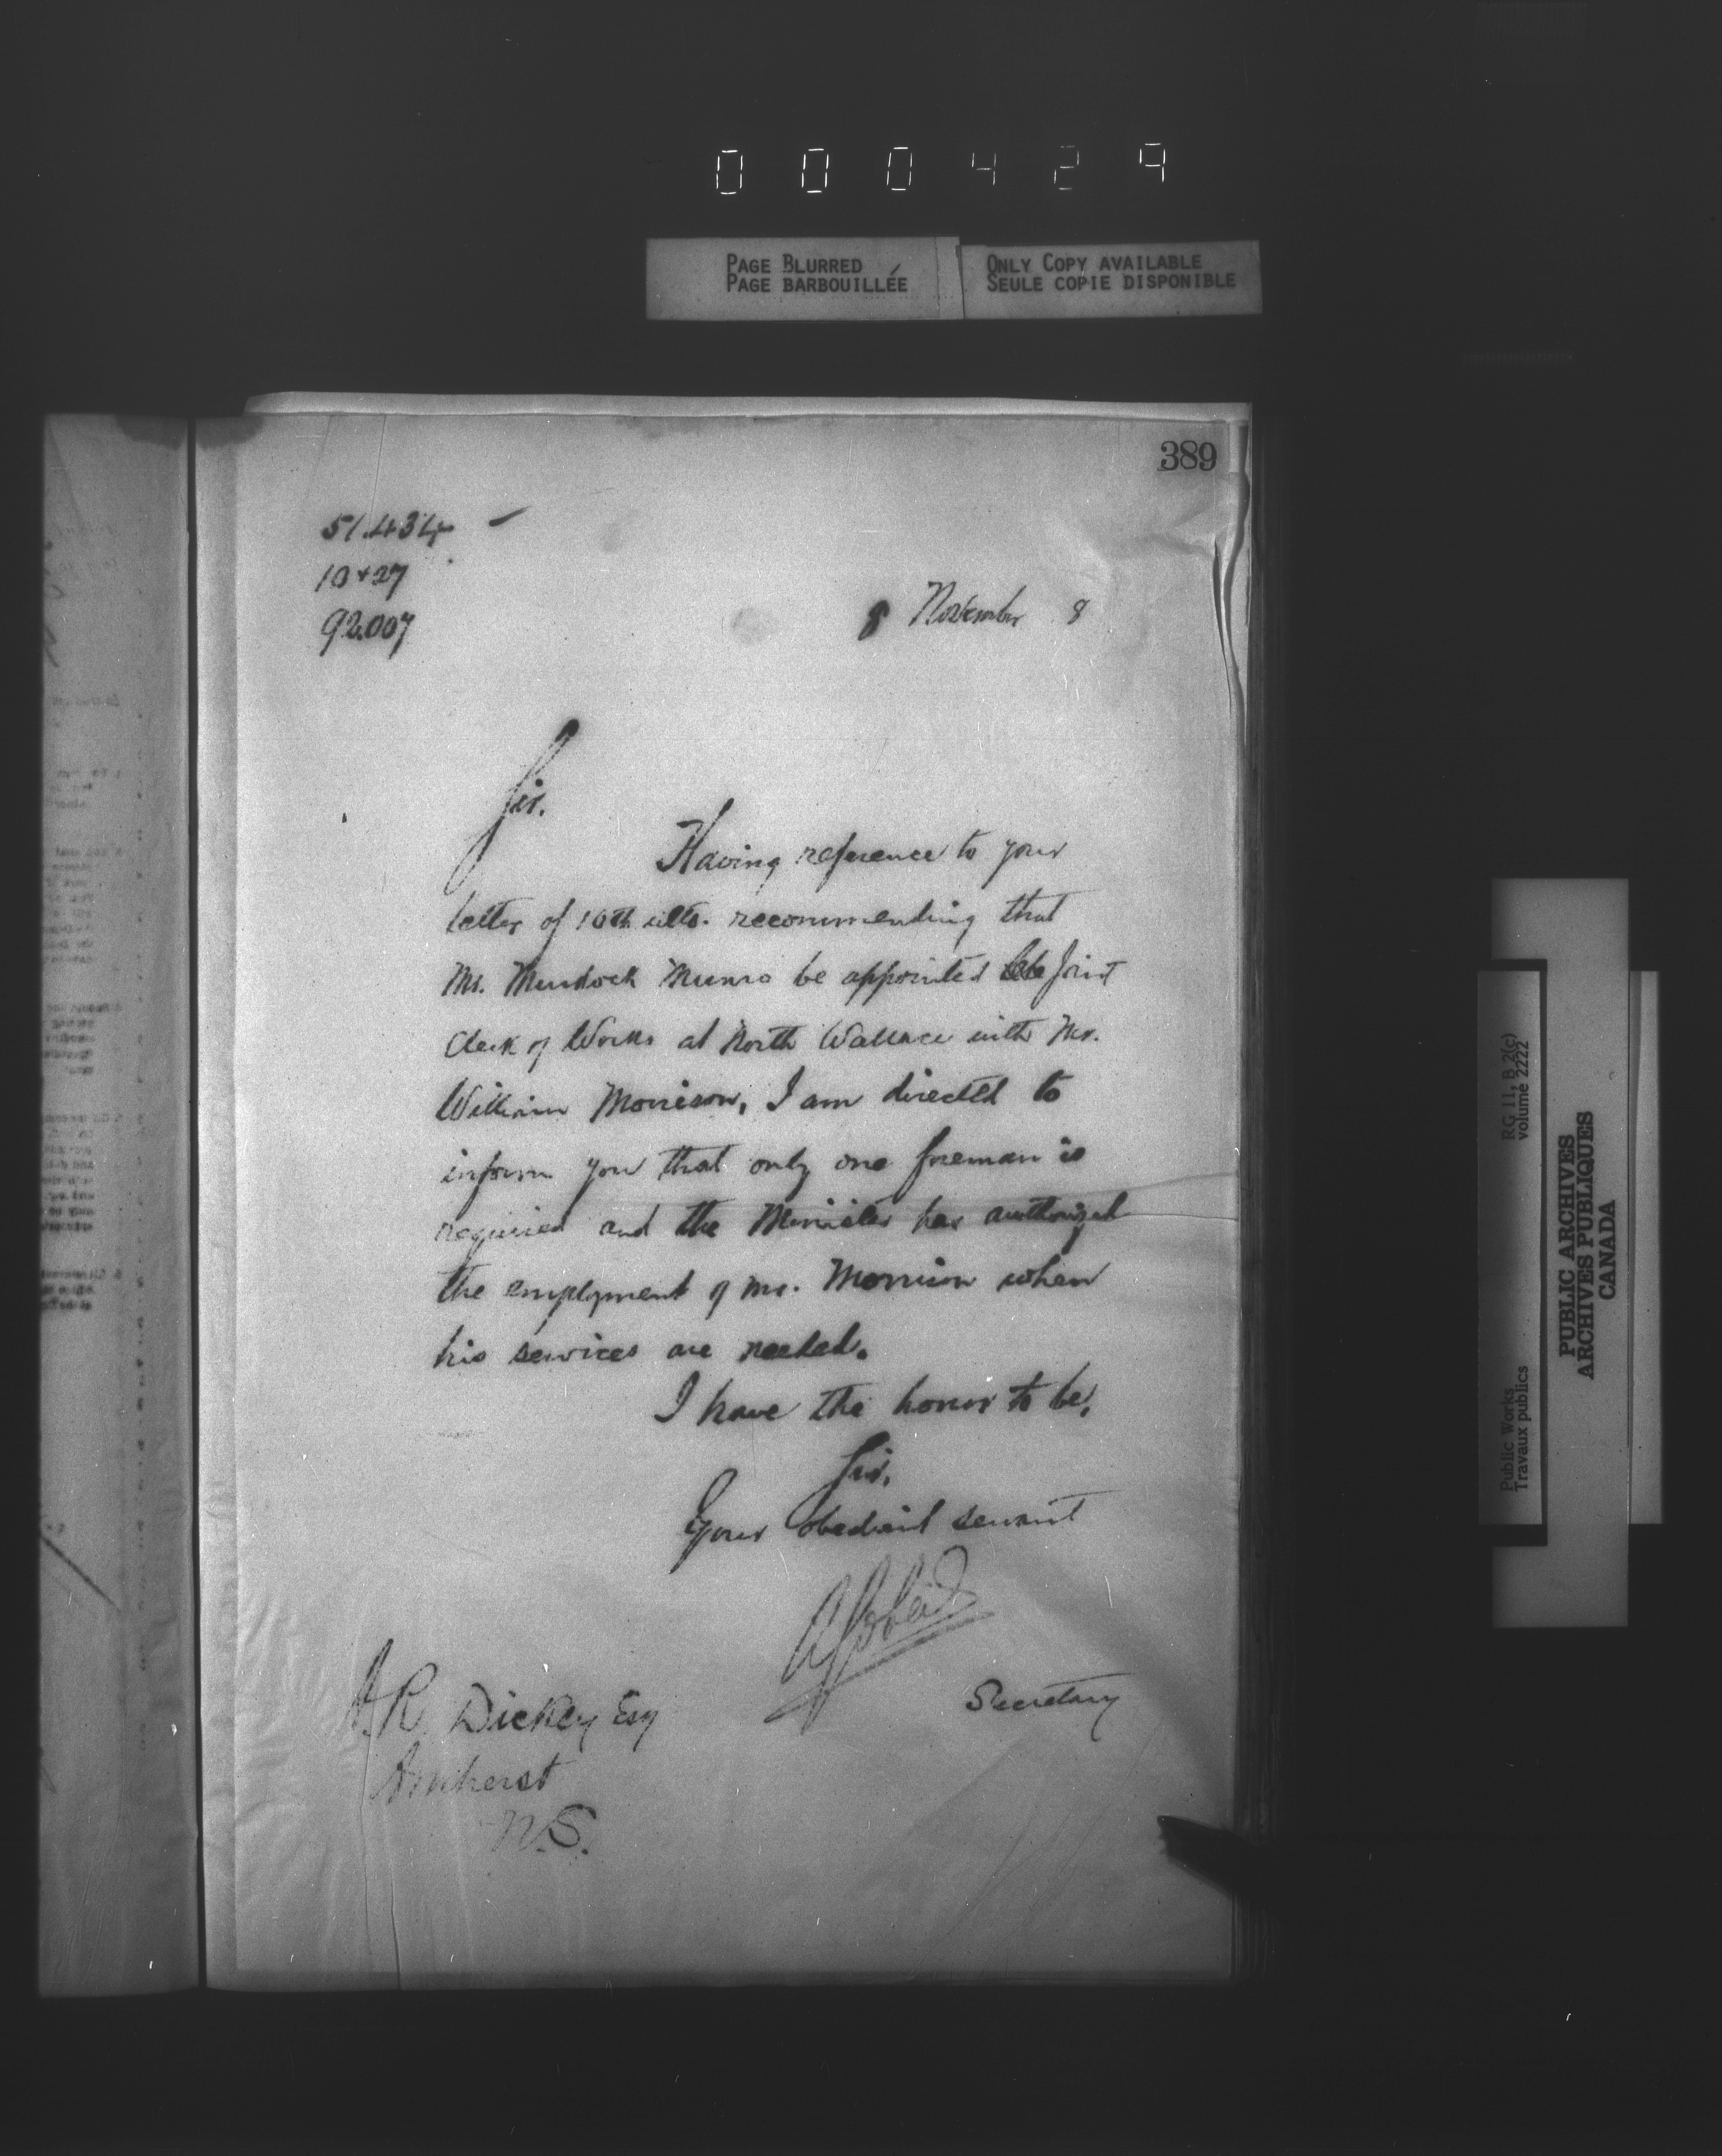 000429
PAGE BLURRED
PAGE BARBOUILLÉE
ONLY COPY AVAILABLE
SEULE COPIE DISPONIBLE
389
51.434
10+27
92.007
8 November 8
Sir.
Having reference to your
letter of 10th ulto. recommending that
Mr. Murdock Munro be appointed Joint
Clerk of Works at North Wallace with Mr.
William Morrison, I am directed to
inform you that only one foreman is
required and the Minister has authorized
the employment of Mr. Morrison when
his services are needed.
I have the honor to be,
Sir,
Your obedient servant
Secretary
A.R. Dickey Esq
Amherst
N.S.
RG 11, B 2(c)
volume 2222
Public Works
Travaux publics
PUBLIC ARCHIVES
ARCHIVES PUBLIQUES
CANADA